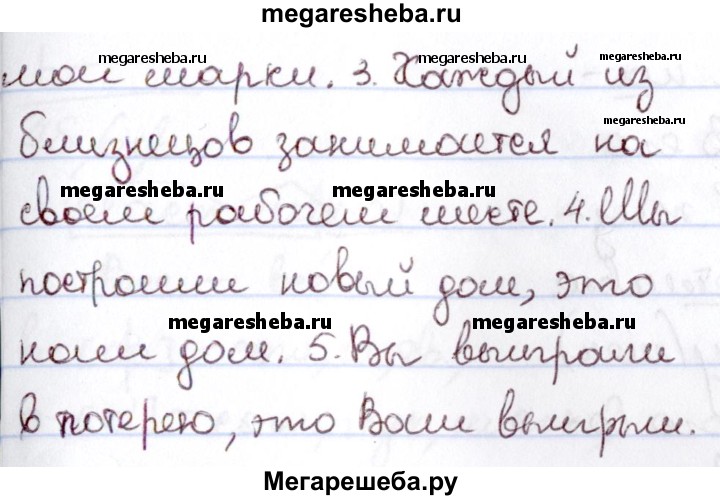 megaresheba.ru
megaresheba.ru megaresheba.ru megaresheba.ru
мои марки. 3. Каждый из
megaresheba.ru
близнецов занимается на
megaresheba.ru megaresheba.ru
своем рабочем месте. 4. Мы
построили новый дом, это
megaresheba.ru megaresheba.ru
наш дом. 5. Вы выиграли
в лотерею, это Ваш выигрыш.
Мегарешеба.ру